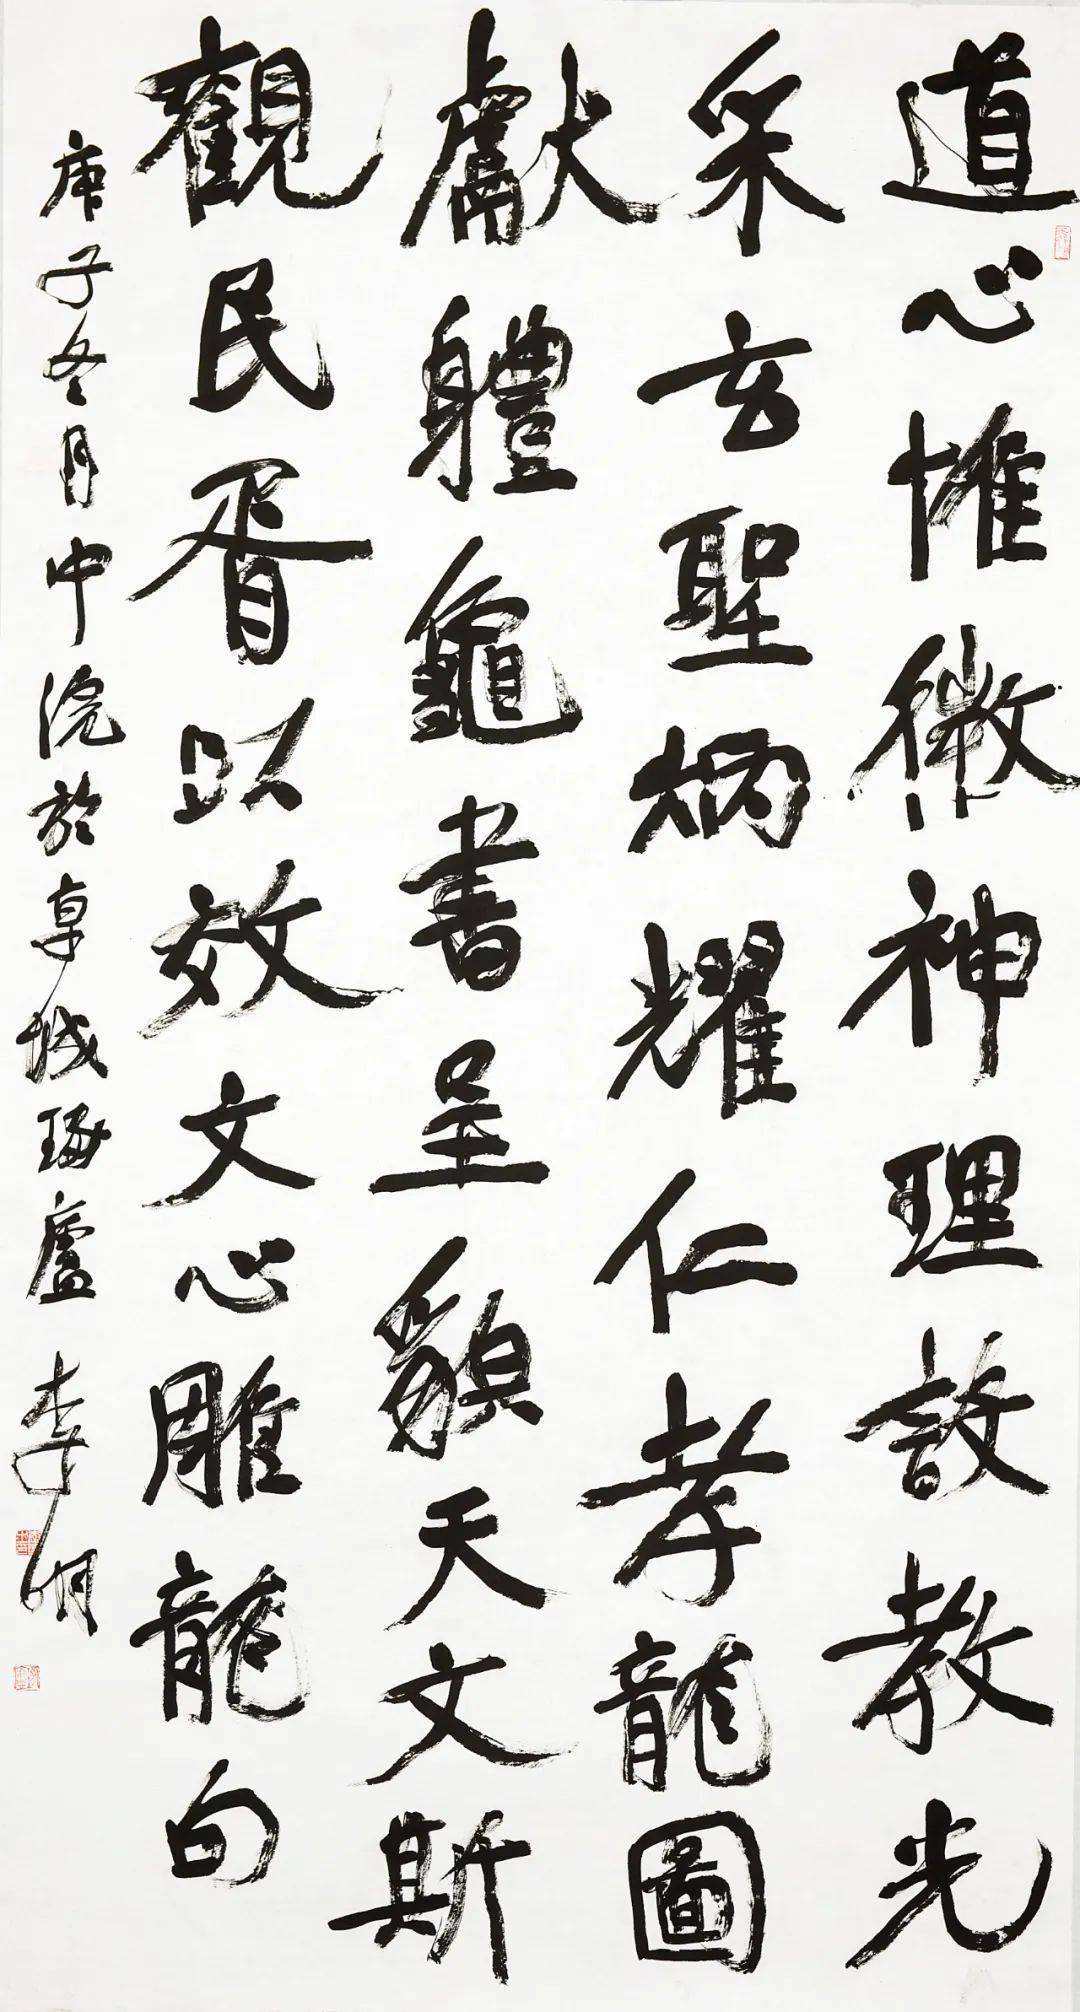 道心惟微神理設教光
采玄聖炳耀仁孝龍圖
獻體龜書呈貌天文斯
觀民胥以效文心雕龍句
庚子冬月中浣於草城琢廬 李明